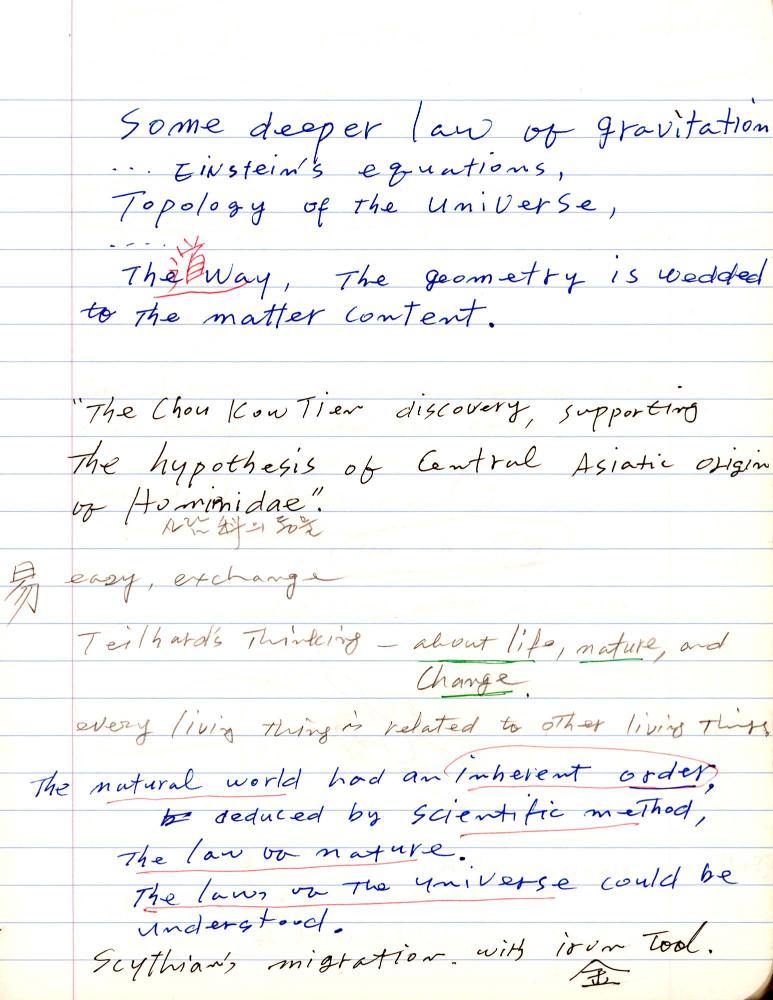 Some deeper law of gravitation
... Einstein's equations,
Topology of the Universe,
.....
The 道 Way, The geometry is wedded
to The matter content.
"The Chou Kow Tien discovery, supporting
The hypothesis of Central Asiatic origin
of Hominidae".
사람 科의 동물
易 easy, exchange
Teilhard's Thinking - about life, nature, and
Change.
every living Thing is related to other living Things
The natural world had an inherent order,
deduced by scientific method,
The law of nature.
The laws of The Universe could be
understood.
Scythian's migration. with iron Tool.
金